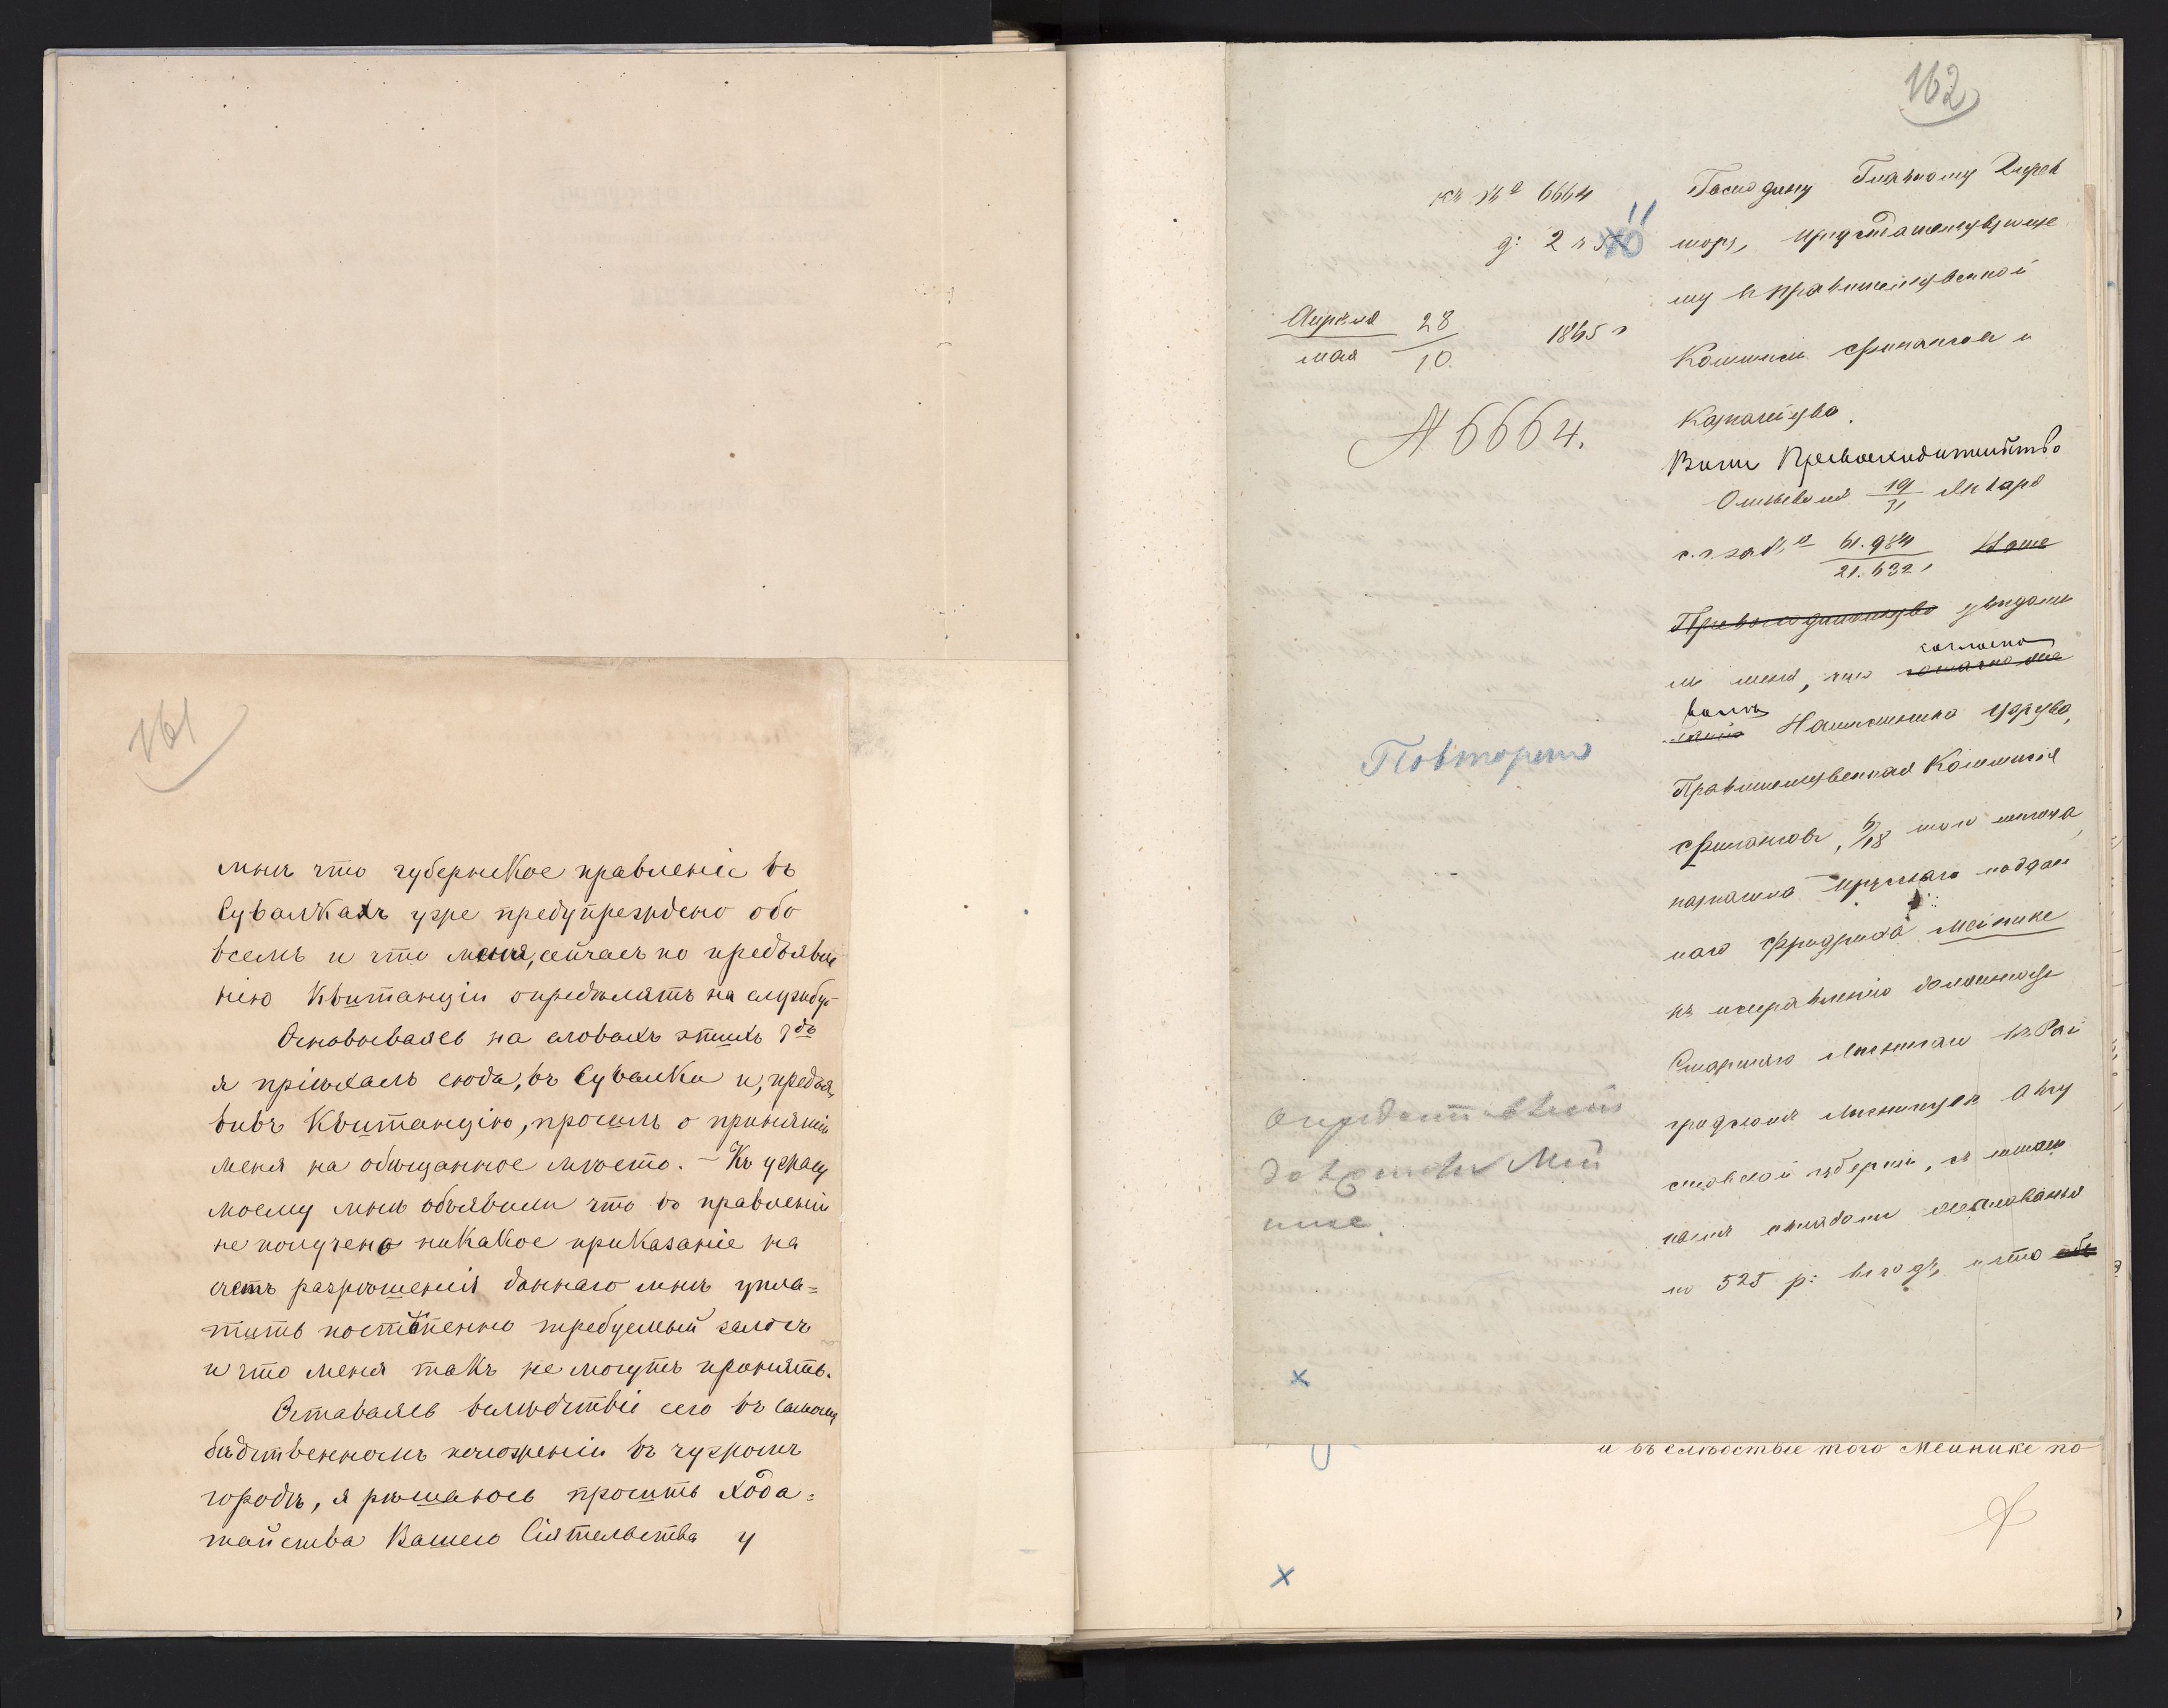 161
мнѣ что губернкое правленіе въ
Сувалкахъ уже предупреждено обо
всемъ и что меня, сейчасъ по предъявле
нію Квитанціи опредѣлятъ на службу.
Основываясь на словахъ этихъ
я пріѣхалъ сюда, въ Сувалки и, предъя
вивъ Квитанцію, просилъ о принятіи
меня на обѣщанное мѣсто. – Къ ужасу
моему мнѣ объявили что въ правленіи
не получено никакое приказаніе на
счетъ разрѣшенія даннаго мнѣ упла=
тить постепенно требуемый залогъ
и что меня такъ не могутъ принять.
Оставаясь вслѣдствіе сего въ самомъ
бѣдственномъ положеніи въ чужомъ
городѣ, я рѣшаюсь просить хода=
тайства Вашего Сіятельства у
162
къ № 6664
д: 2 ч 11
Апрѣля 28
мая 10. 1865 г
№ 6664.
Повторено
Господину Главному Дирек
тору, предсѣдательствующе
му въ Правительственной
Коммисіи Финансовъ и
Казначейства.
Ваше Превосходительство
Отношеніемъ 19/31 Января
с. г. за № 61.984/21.632, Ваше
Превосходительство увѣдоми
ли меня, что согласно
волѣ Намѣстника Царства,
Правительственная Коммисія
Финансовъ, 6/18 того мѣсяца,
назначила прусскаго поддан
наго Фридриха Мейнике
къ исправленію должности
Старшаго Лѣсничаго въ Рай
градскомъ Лѣсничествѣ Авгу
стовской губерніи, съ
окладомъ жалованья
по 525 р: въ годъ, и что
Мей
нике.
и въ слѣдствіе того Мейнике по